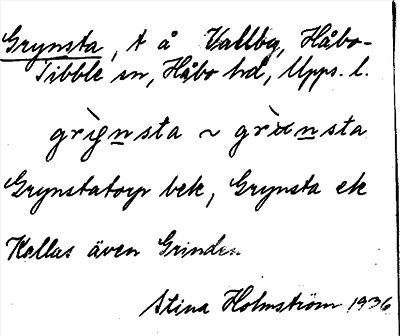 Grynsta, t å Vallby, Håbo-
Tibble sn, Håbo hd, Upps. l.
Grynstatorp bek, Grynsta ek
Kallas även Grinden
Stina Holmström 1936